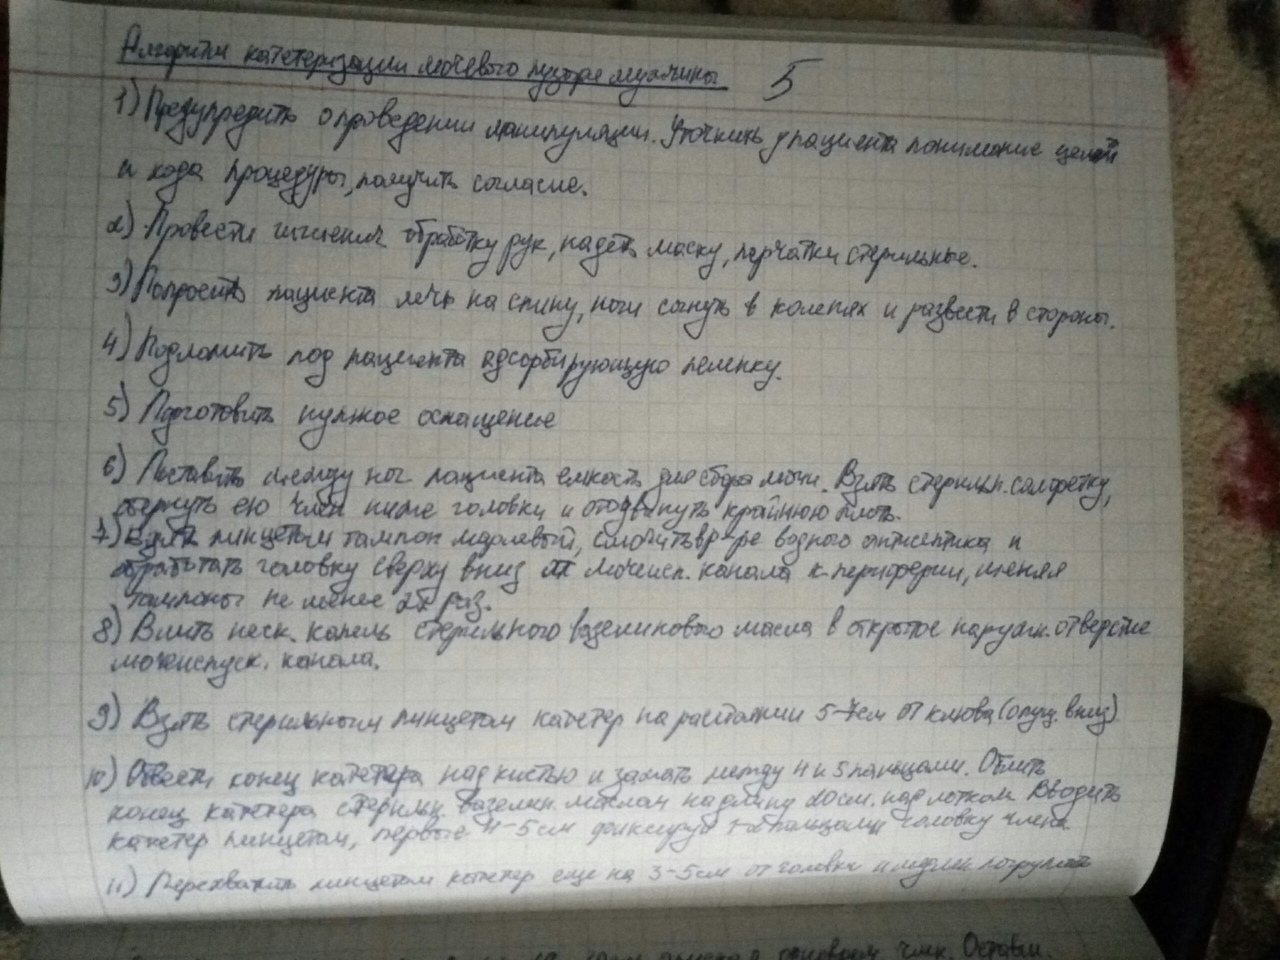 Алгоритм катетеризации мочевого пузыря мужчины 5
1) Предупредить о проведении манипуляции. Уточнить у пациента понимание целей
и хода процедуры, получить согласие.
2) Провести гигиенич. обработку рук, надеть маску, перчатки стерильные.
3) Попросить пациента лечь на спину, ноги согнуть в коленях и развести в стороны.
4) Подложить под пациента адсорбирующую пеленку.
5) Подготовить нужное оснащение
6) Поставить между ног пациента емкость для сбора мочи. Взять стерильн. салфетку,
обернуть ею член ниже головки и отодвинуть крайнюю плоть.
7) Взять пинцетом тампон марлевый, смочить в р-ре водного антисептика и
обработать головку сверху вниз от мочеисп. канала к периферии, меняя
тампоны не менее 2х раз.
8) Влить неск. капель стерильного вазелинового масла в открытое наружн. отверстие
мочеиспуск. канала.
9) Взять стерильным пинцетом катетер на расстоянии 5-7см от клюва (опущ. вниз)
10) Обвести конец катетера над кистью и зажать между 4 и 5 пальцами. Облить
конец катетера стерильн. вазелин. маслом на длину 20см. над лотком. Вводить
катетер пинцетом, первые 4-5см фиксируя 1-2 пальцами головку члена
11) Перехватить пинцетом катетер еще на 3-5см от головки и медлен. погружать
основом член. Оставш.